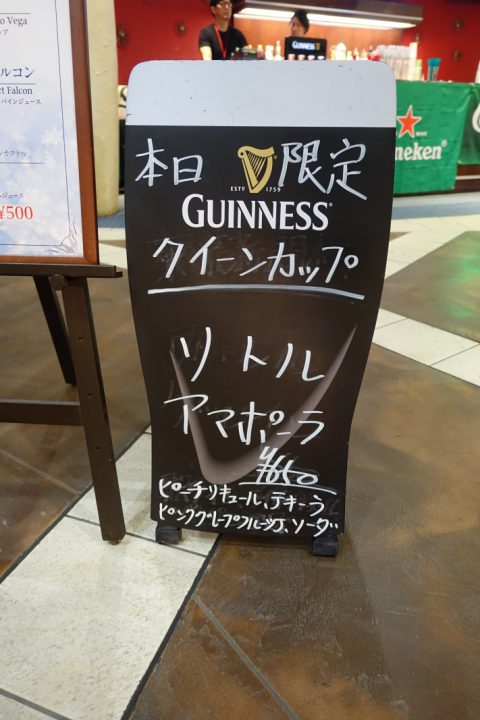 o Vega
ップ
ルコン
t Falcon
パインジュース
ンカクテル
ムジュース
¥500
GUINNESS
Heineken
本日 限定
ESTD 1759
GUINNESS
クイーンカップ
リトル
アマポーラ
¥650
ピーチリキュール、テキーラ
ピンクグレープフルーツJ、ソーダ